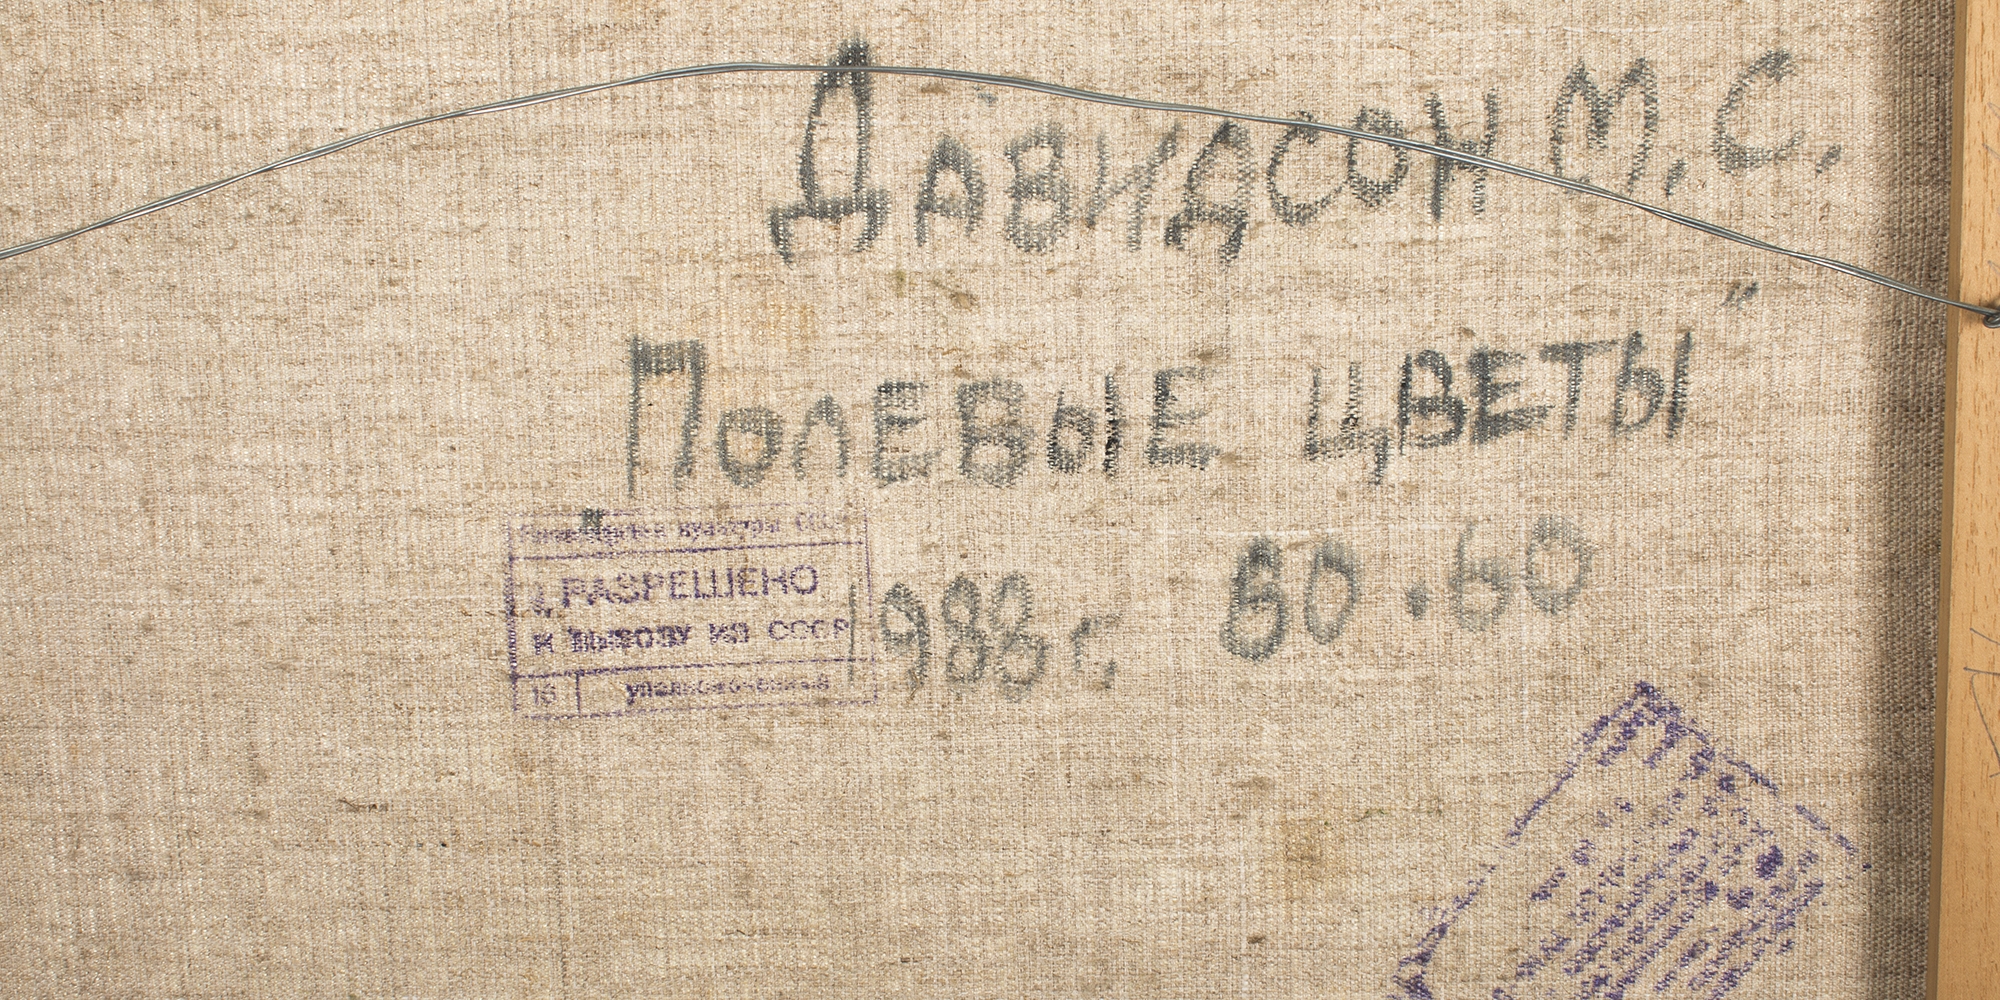 Давидсон М.С.
"Полевые цветы"
1988 г 60.60
Министерство культуры СССР
РАЗРЕШЕНО
к вывозу из СССР
16 уполномоченный